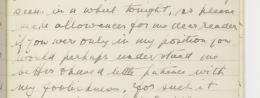 seem in a whirl tonight, so please
make allowances for me dear reader
if you were only in my position you
would perhaps understand me
better & have a little patience with
my foolishness, for such it